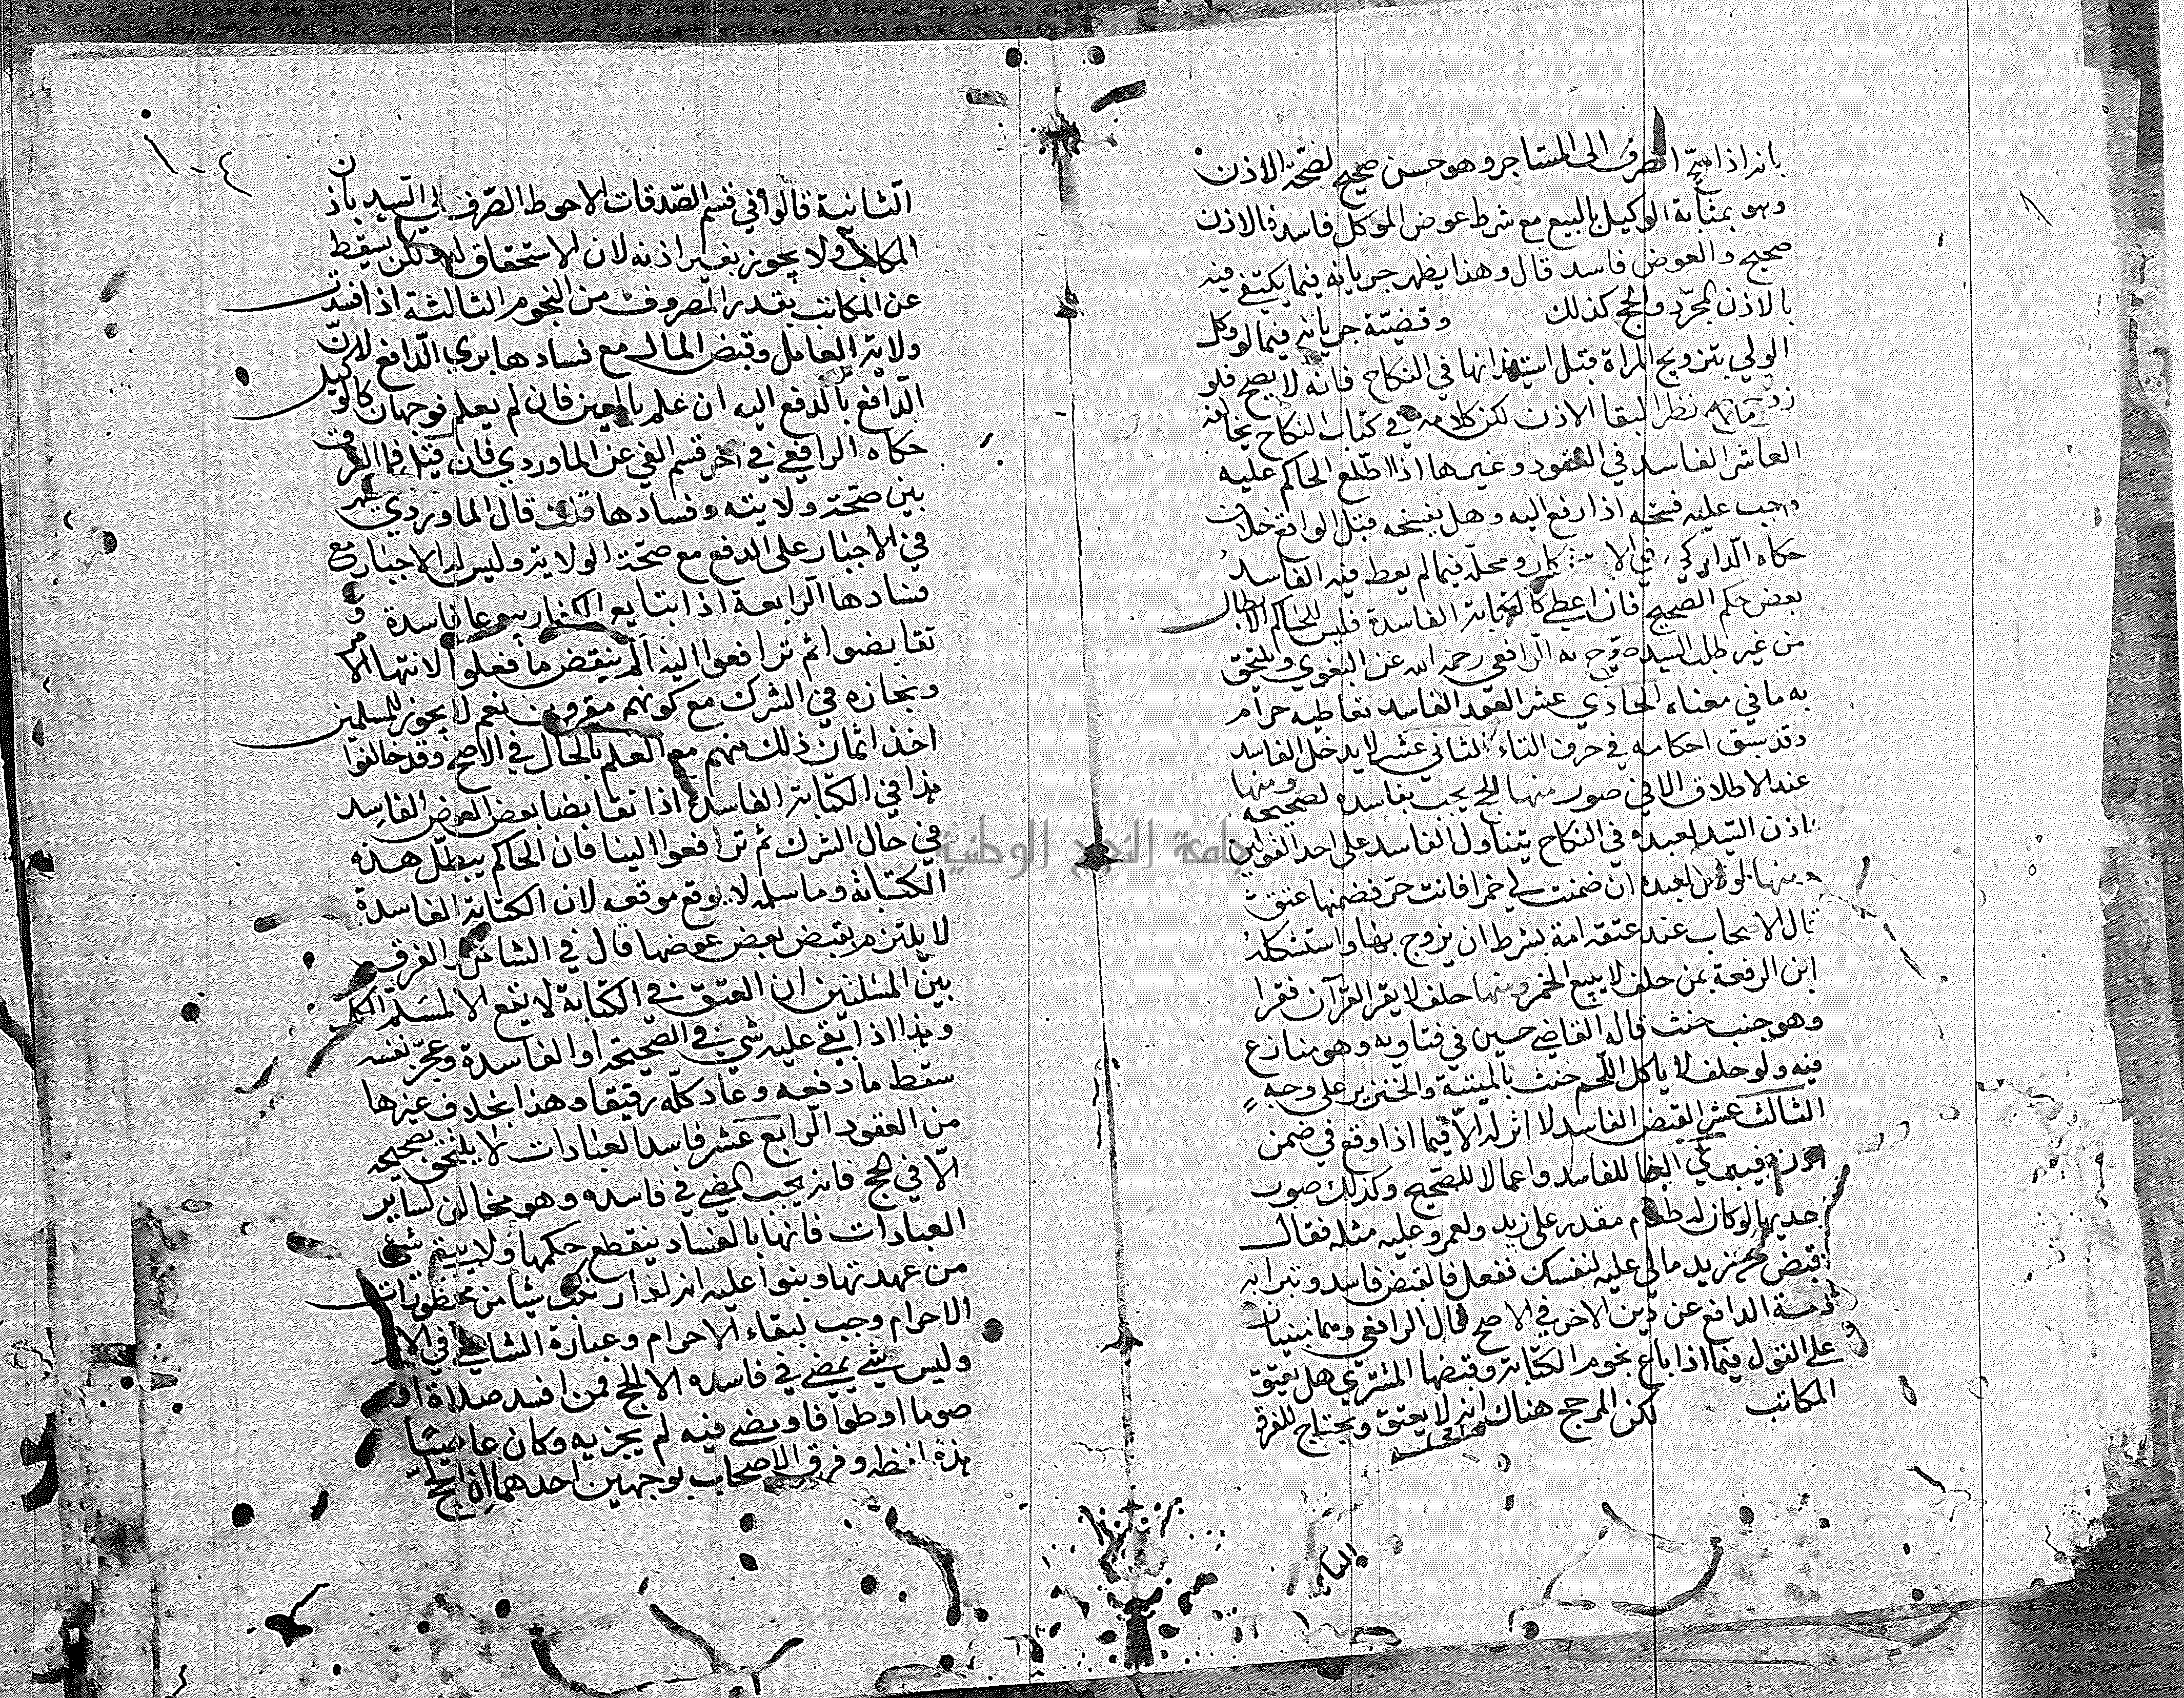 بانه اذا صح الصرف الى المستاجر وهو حسن صحيح لصحة الاذن
وهو بمثابة الوكيل بالبيع مع شرط عوض الموكل فاسد فالاذن
صحيح والعوض فاسد قال وهذا يظهر جريانه فيما يكتفي فيه
بالاذن المجرد والحج كذلك وقضيته جريانه فيما لو وكل
الولي بتزويج المراة قبل استيذانها في النكاح فانه لا يصح فلو
نظرا لبقا الاذن لكن كلامه في كتاب النكاح يخالفه
العاشر الفاسد في العقود وغيرها اذا اطلع الحاكم عليه
وجب عليه فسخه اذا رفع اليه وهل يفسخه قبل الرافع خلاف
حكاه الداركي في الا ومحله فيما لم يعط فيه الفاسد
بعض حكم الصحيح فان اعطي كالكتابة الفاسدة فليس للحاكم الابطال
من غير طلب السيد صرح به الرافعي رحمه الله عن البغوي ويلتحق
به ما في معناه الحادي عشر العقد الفاسد تعاطيه حرام
وقد سبق احكامه في حرف التاء الثاني عشر لا يدخل الفاسد
عند الاطلاق الا في صور منها الحج يجب بفاسده لصحيحه ومنها
اذن السيد لعبده في النكاح يتناول الفاسد على احد القولين
ومنها لو قال لعبده ان ضمنت لي خمرا فانت حر فضمنها عتق
قال الاصحاب عند عتقه امة بشرط ان يزوج بها واستشكله
ابن الرفعة بمن حلف لا يبيع الخمر ومنها حلف لا يقرا القرآن فقرا
وهو جنب حنث قاله القاضي حسين في فتاويه وهو منازع
فيه ولو حلف لا ياكل اللحم حنث بالميتة والخنزير على وجه
الثالث عشر القبض الفاسد لا اثر له الا فيما اذا وقع في ضمن
اذن فيبري الغا للفاسد واعمالا للصحيح وكذلك صور
احديها لو كان له طعام مقدر على زيد ولعمرو عليه مثله فقال
اقبض من زيد مالي عليه لنفسك ففعل فالقبض فاسد وتبرا به
ذمة الدافع عن دين الاخر في الاصح قال الرافعي وهما مبنيان
على القول فيما اذا باع نجوم الكتابة وقبضها المشتري هل يعتق
المكاتب لكن المرجح هناك انه لا يعتق ويحتاج للفرق
الثانيه
١٠٤
الثانية قالوا في قسم الصدقات الاحوط الصرف الي السيد باذن
المكاتب ولا يجوز بغير اذنه لان الاستحقاق له ولكن يسقط
عن المكاتب بقدر المصروف من النجوم الثالثة اذا افسدت
ولاية العامل وقبض المال مع فسادها بري الدافع لان
الدافع بالدفع اليه ان علم بالعين فان لم يعلم فوجهان كالوكيل
حكاه الرافعي في اخر قسم الفي عن الماوردي فان قيل فما الفرق
بين صحة ولايته وفسادها قلت قال الماوردي يظهر
في الاجبار على الدفع مع صحة الولاية وليس له الاجبار مع
فسادها الرابعة اذا تبايع الكفار بيوعا فاسدة و
تقابضوا ثم ترافعوا الينا لم ينقض ما فعلوا لانتهاء الامر
ونجازه في الشرك مع كونهم مقرون نعم لا يجوز للمسلمين
اخذ اثمان ذلك منهم مع العلم بالحال في الاصح وقد خالفوا
هذا في الكتابة الفاسدة اذا تقابضا بعض العوض الفاسد
في حال الشرك ثم ترافعوا الينا فان الحاكم يبطل هذه
الكتابة وما سلمه لا يوقع موقعه لان الكتابة الفاسدة
لا يلتزم بقبض بعض عوضها قال في الشامل الفرق
بين المسئلتين ان العتق في الكتابة لا يقع الا لمسلم الكل
وهذا اذا بقي عليه شي في الصحيحة او الفاسدة وعجز نفسه
سقط ما دفعه وعاد كله رقيقا وهذا بخلاف غيرها
من العقود الرابع عشر فاسد العبادات لا يلتحق بصحيحه
الا في الحج فانه يجب المضي في فاسده وهو مخالف لساير
العبادات فانها بالفساد ينقطع حكمها ولا يبقي شي
من عهدتها وبنوا عليه انه لو ارتكب شيا من محظورات
الاحرام وجب لبقاء الاحرام وعبارة الشافعي في الام
وليس شي يمضي في فاسده الا الحج فمن افسد صلاة او
صوما او طوافا ومضي فيه لم يجزيه وكان عاصيا
هذا لفظه وفرق الاصحاب بوجهين احدهما ان الحج
جامعة النجاح الوطنية